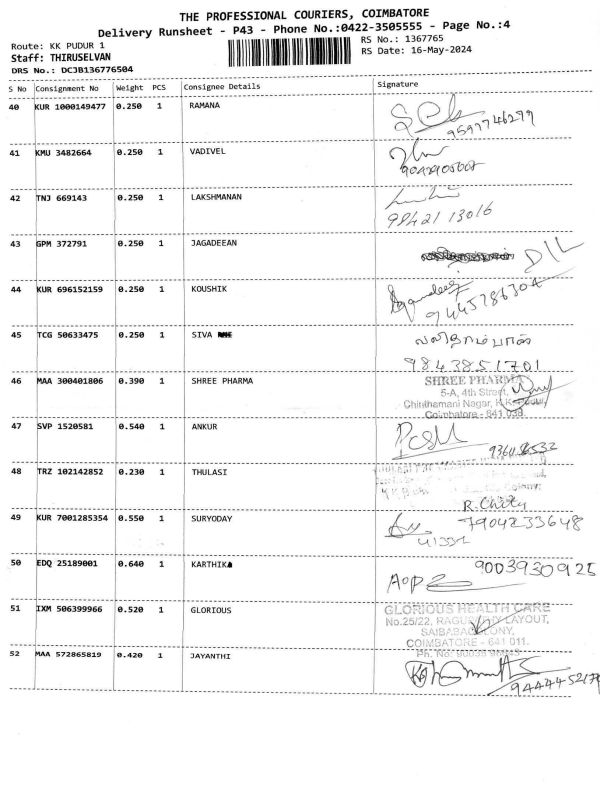 THE PROFESSIONAL COURIERS, COIMBATORE
Delivery Runsheet - P43 - Phone No.:0422-3505555 - Page No.:4
Route: KK PUDUR 1
RS No.: 1367765
Staff: THIRUSELVAN
RS Date: 16-May-2024
DRS No.: DCJB136776504
S No Consignment No Weight PCS Consignee Details Signature
40 KUR 1000149477 0.250 1 RAMANA
9597746299
41 KMU 3482664 0.250 1 VADIVEL
42 TNJ 669143 0.250 1 LAKSHMANAN
98421 13016
43 GPM 372791 0.250 1 JAGADEEAN
44 KUR 696152159 0.250 1 KOUSHIK
9445786304
45 TCG 50633475 0.250 1 SIVA
9843851701
46 MAA 300401806 0.390 1 SHREE PHARMA
SHREE PHARMA
5-A, 4th Street,
Chinthamani Nagar, K.K.Pudur,
Coimbatore - 641 038.
47 SVP 1520581 0.540 1 ANKUR
48 TRZ 102142852 0.230 1 THULASI
49 KUR 7001285354 0.550 1 SURYODAY
7904233648
50 EDQ 25189001 0.640 1 KARTHIK
9003930925
51 IXM 506399966 0.520 1 GLORIOUS
GLORIOUS HEALTH CARE
No.25/22, LAYOUT,
SAIBABA COLONY,
COIMBATORE - 641 011.
52 MAA 572865819 0.420 1 JAYANTHI